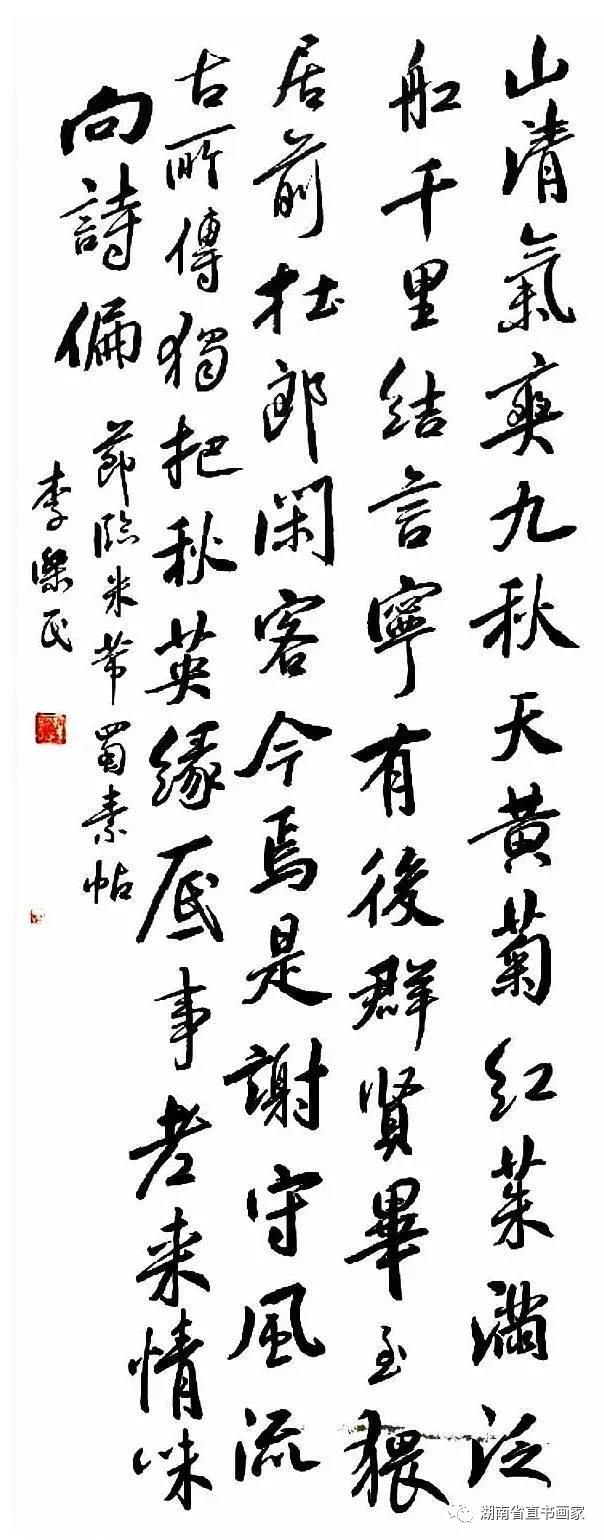 山清氣爽九秋天黄菊紅茱滿泛
船千里結言寧有後群賢畢至猥
居前杜郎閑客今焉是謝守風流
古所傳獨把秋英緣底事老来情味
向詩偏
節臨米芾蜀素帖
李樂民
湖南省直书画家